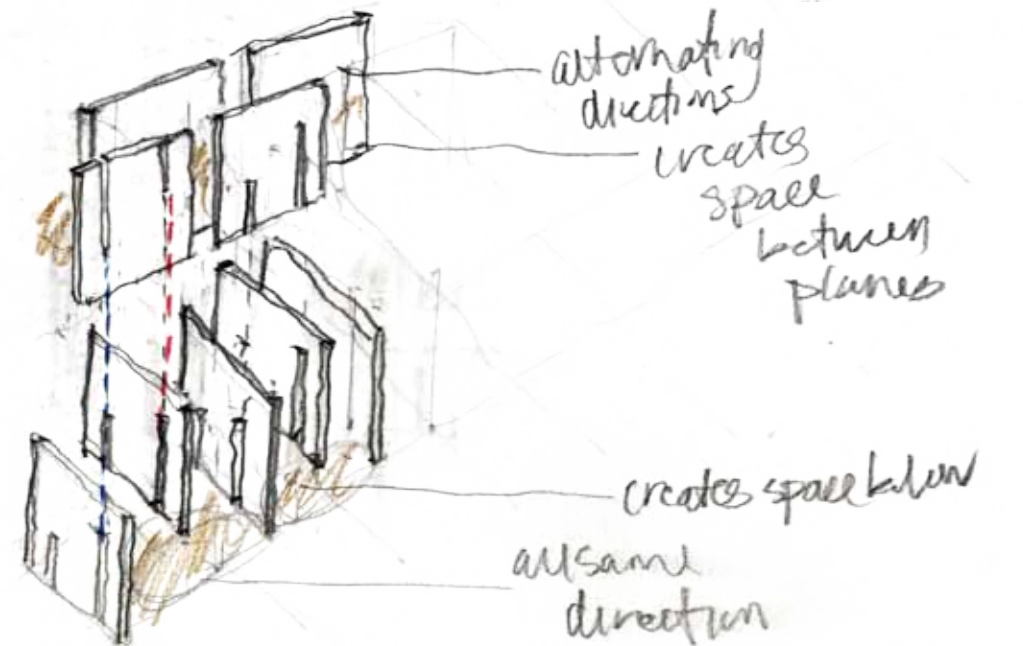 alternating
directions
creates
space
between
planes
creates space below
all same
direction